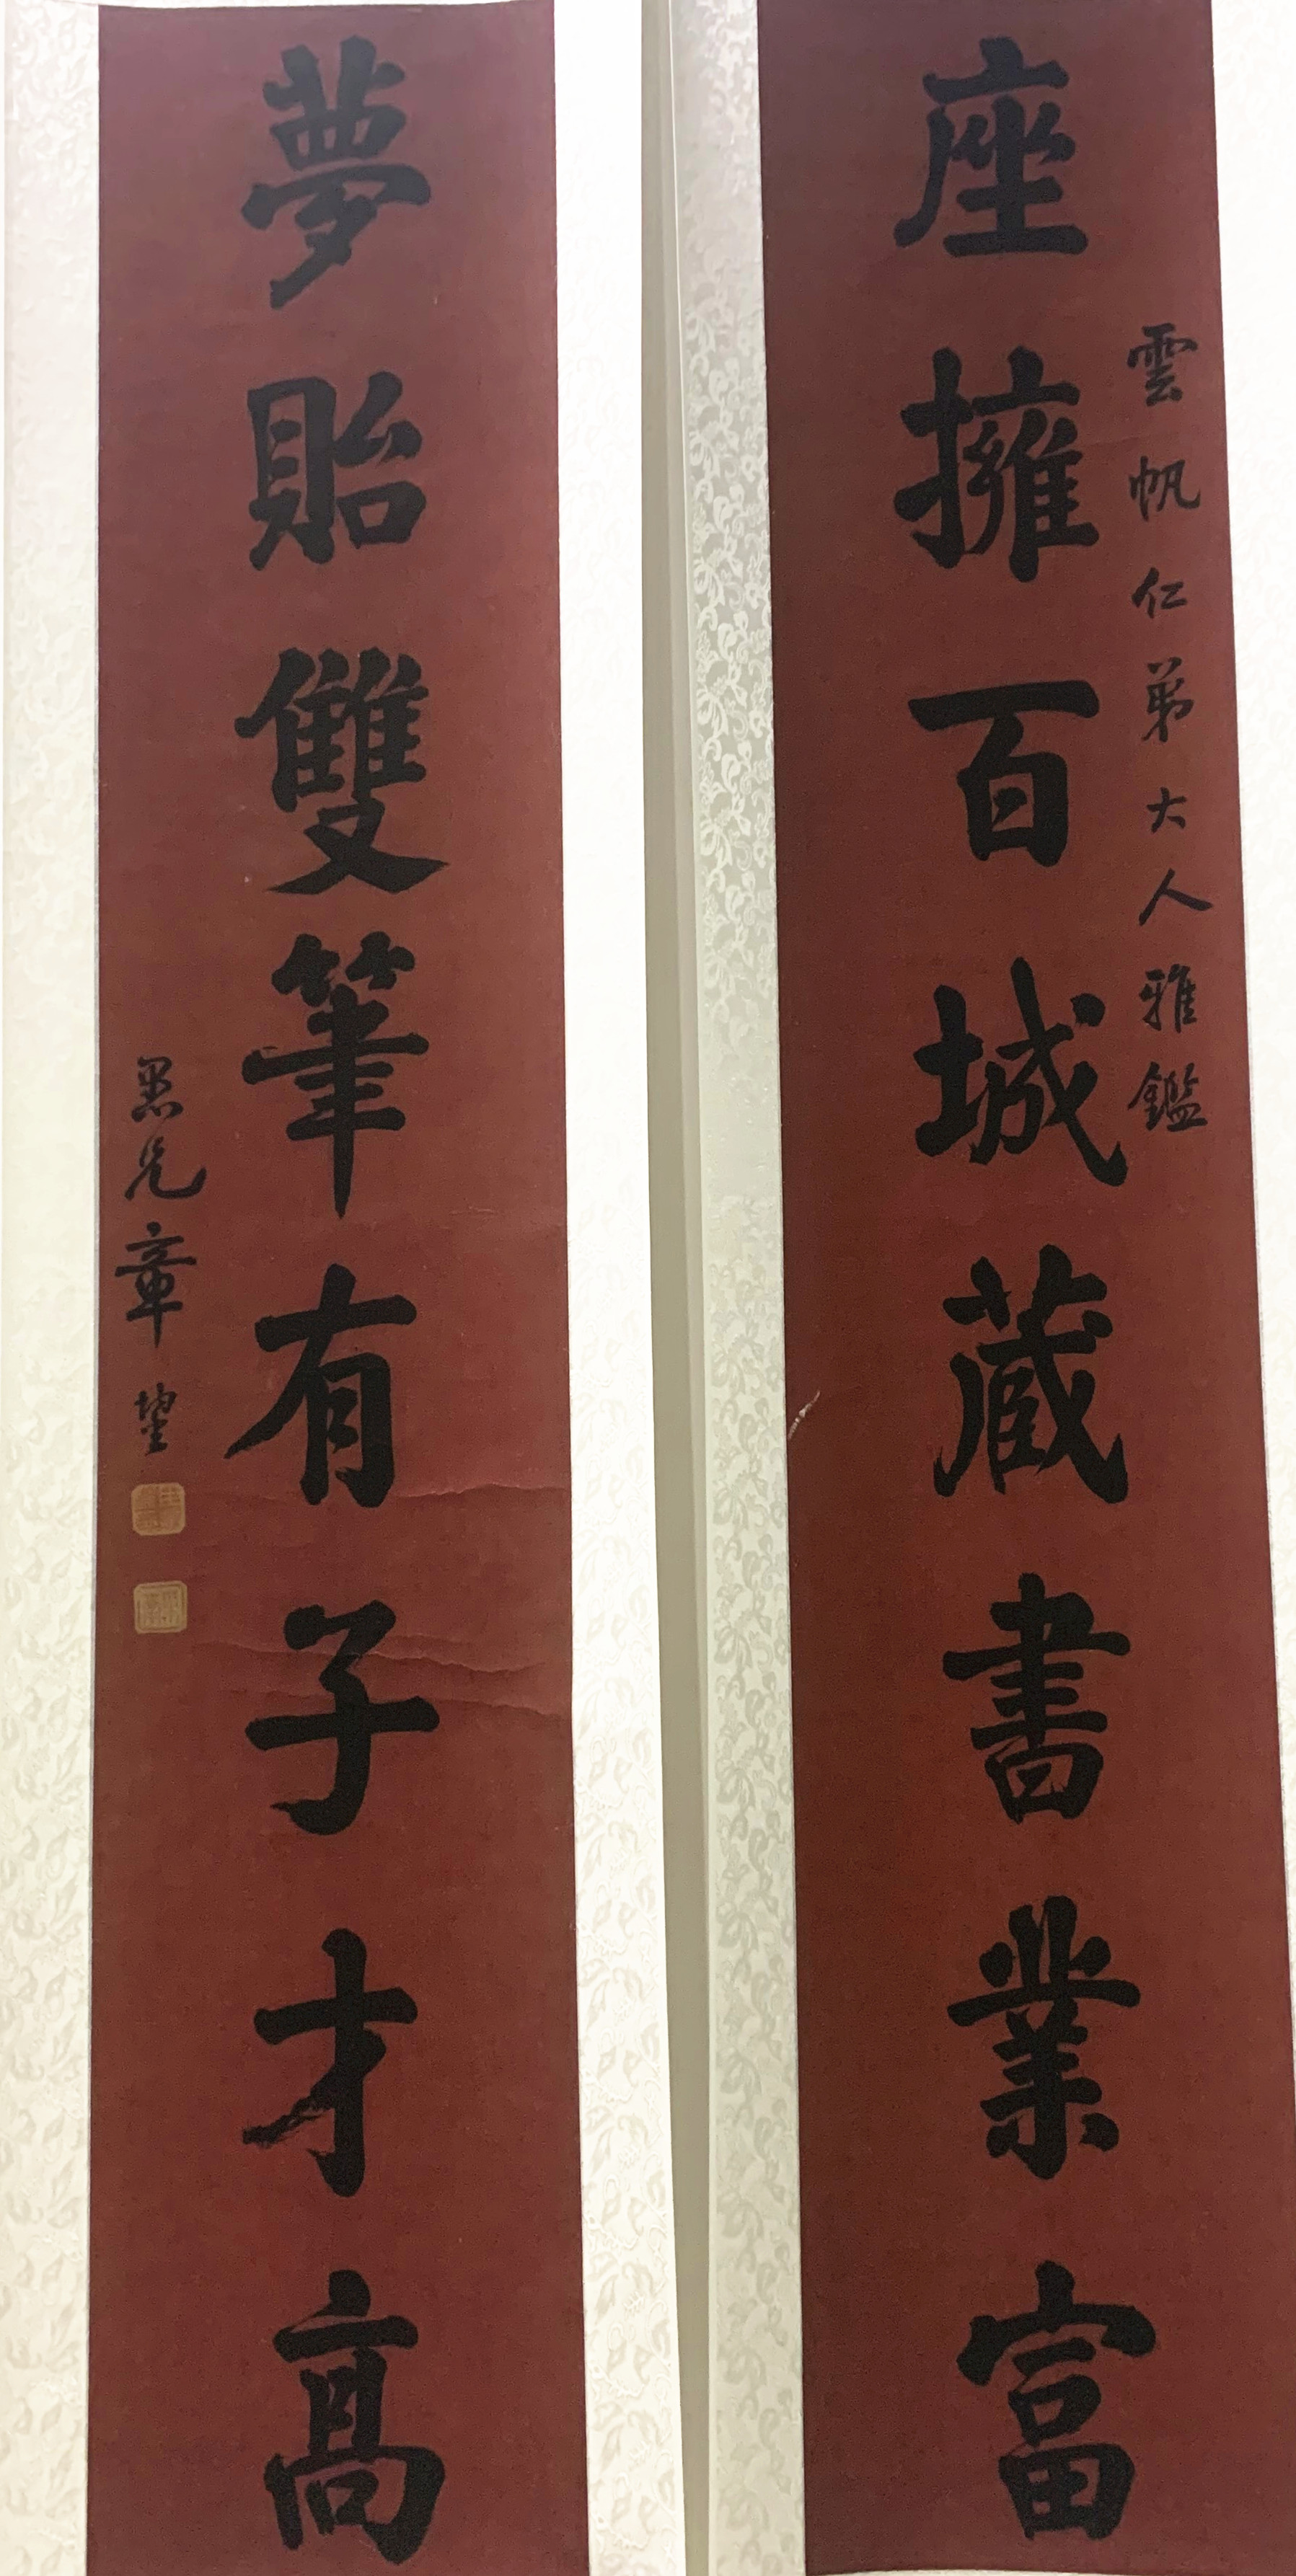 座擁百城藏書業富
雲帆仁弟大人雅鑑
夢貽雙筆有子才高
愚兄章